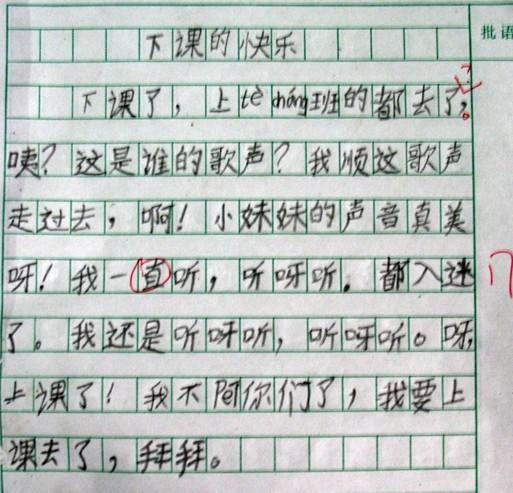 批语
下课的快乐
下课了，上tè cháng班的都去了，
咦？这是谁的歌声？我顺这歌声
走过去，啊！小妹妹的声音真美
呀！我一直听，听呀听。都入迷
了。我还是听呀听，听呀听。呀，
上课了！我不陪你们了，我要上
课去了，拜拜。